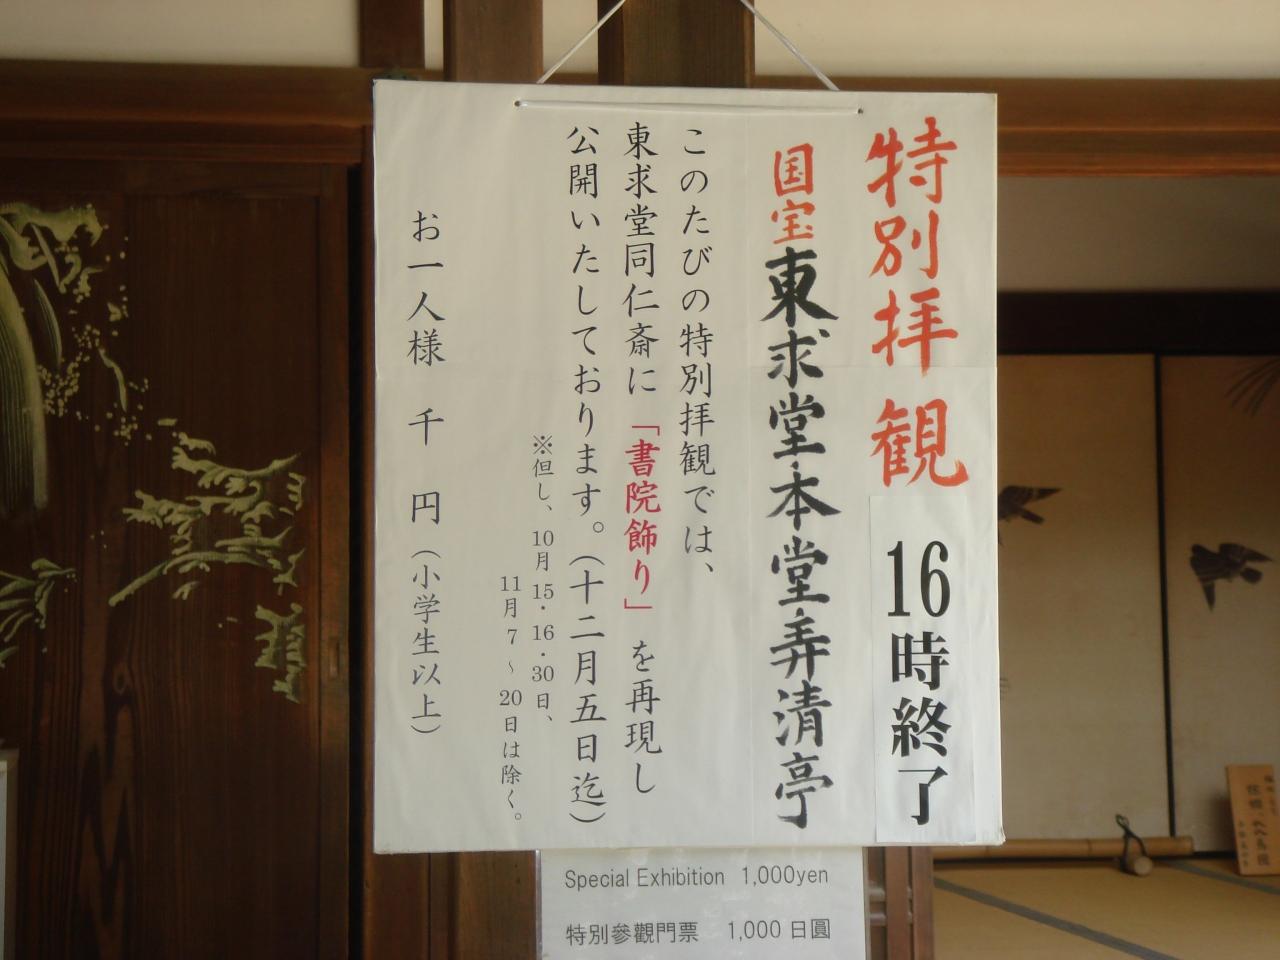 特別拝観
16時終了
国宝東求堂・本堂・弄清亭
このたびの特別拝観では、
東求堂同仁斎に「書院飾り」を再現し
公開いたしております。（十二月五日迄）
※但し、10月15・16・30日、
11月7～20日は除く。
お一人様 千円（小学生以上）
Special Exhibition 1,000yen
特別參觀門票 1,000日圓